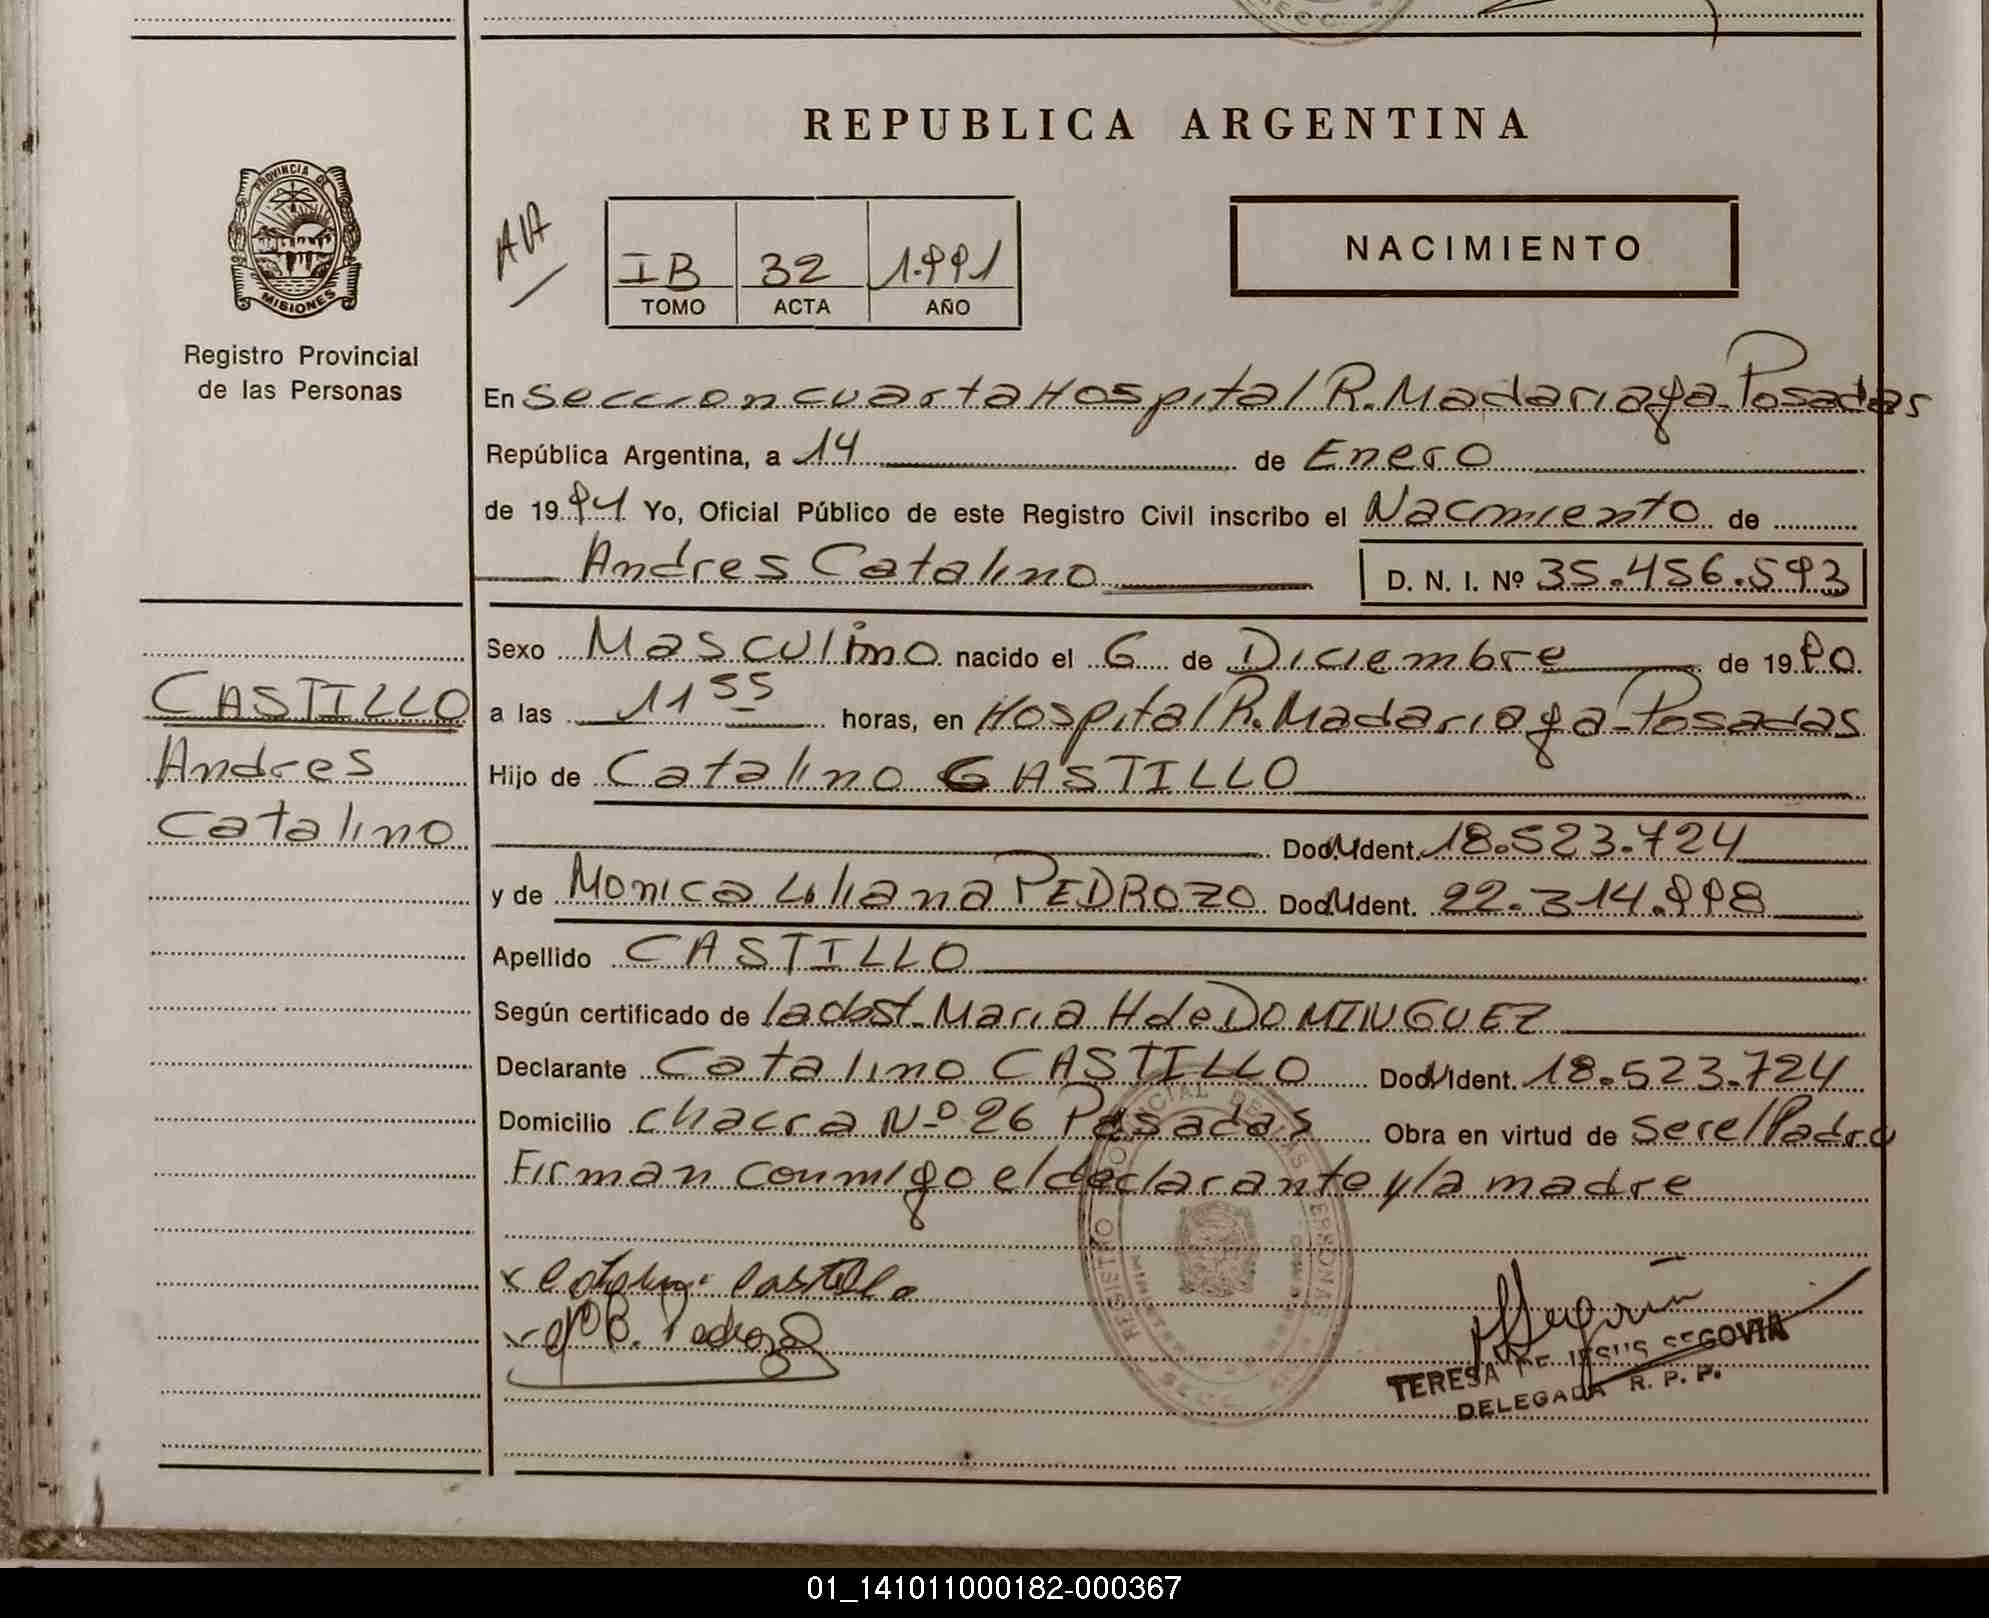 REPUBLICA ARGENTINA
PROVINCIA DE
MISIONES
Registro Provincial
de las Personas
AVA
IB 32 1.991
TOMO ACTA AÑO
NACIMIENTO
En Seccion cuarta Hospital R. Madariaga - Posadas
República Argentina, a 14 de Enero
de 1991 Yo, Oficial Público de este Registro Civil inscribo el Nacimiento de
Andres Catalino D. N. I. Nº 35.456.593
Sexo Masculino nacido el 6 de Diciembre de 1990
CASTILLO
Andres
Catalino
a las 11 55 horas, en Hospital R. Madariaga - Posadas
Hijo de Catalino CASTILLO
Doc. Ident. 18.523.724
y de Monica Liliana PEDROZO Doc. Ident. 22.314.998
Apellido CASTILLO
Según certificado de la obst. Maria H de DOMINGUEZ
Declarante Catalino CASTILLO Doc. Ident. 18.523.724
Domicilio chacra Nº 26 Posadas Obra en virtud de ser el Padre
Firman conmigo el declarante y la madre
x Catalino Castillo
x B. Pedrozo
TERESA DE JESUS SEGOVIA
DELEGADA R. P. P.
01_141011000182-000367